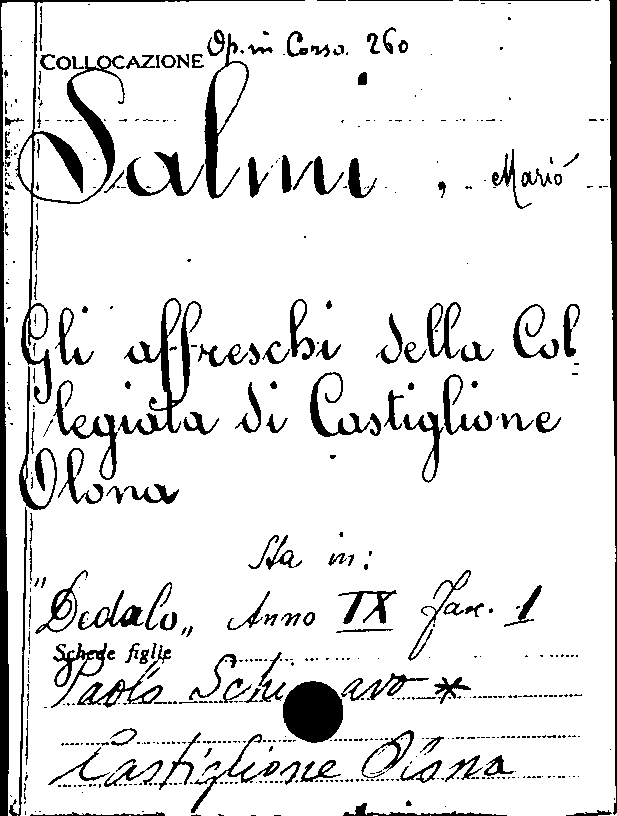 COLLOCAZIONE Op. in Corso. 260
Salmi, Mario
Gli affreschi della Col
legiata di Castiglione
Olona
Sta in:
"Dedalo„ Anno IX Fasc. 1
Schede figlie
Paolo Schiavo *
Castiglione Olona